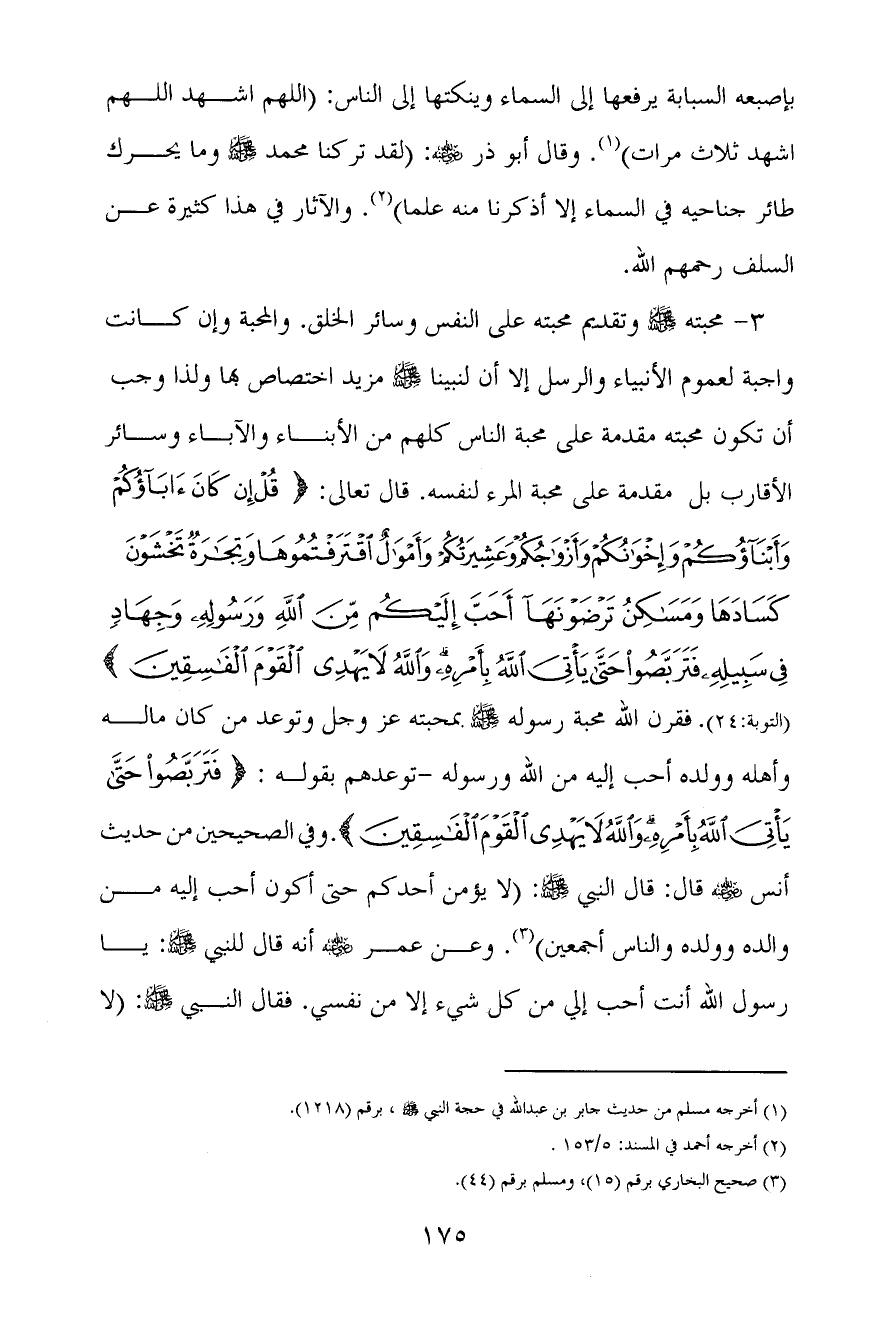 بإصبعه السبابة يرفعها إلى السماء وينكتها إلى الناس: (اللهم اشهد اللهم
اشهد ثلاث مرات)(١). وقال أبو ذر ﵁: (لقد تركنا محمد ﷺ وما يحرك
طائر جناحيه في السماء إلا أذكرنا منه علما)(٢). والآثار في هذا كثيرة عن
السلف رحمهم الله.
٣- محبته ﷺ وتقديم محبته على النفس وسائر الخلق. والمحبة وإن كانت
واجبة لعموم الأنبياء والرسل إلا أن لنبينا ﷺ مزيد اختصاص بها ولذا وجب
أن تكون محبته مقدمة على محبة الناس كلهم من الأبناء والآباء وسائر
الأقارب بل مقدمة على محبة المرء لنفسه. قال تعالى: ﴿ قُلْ إِن كَانَ ءَابَآؤُكُمْ
وَأَبْنَآؤُكُمْ وَإِخْوَٰنُكُمْ وَأَزْوَٰجُكُمْ وَعَشِيرَتُكُمْ وَأَمْوَٰلٌ ٱقْتَرَفْتُمُوهَا وَتِجَٰرَةٌ تَخْشَوْنَ
كَسَادَهَا وَمَسَٰكِنُ تَرْضَوْنَهَآ أَحَبَّ إِلَيْكُم مِّنَ ٱللَّهِ وَرَسُولِهِۦ وَجِهَادٍ
فِى سَبِيلِهِۦ فَتَرَبَّصُوا۟ حَتَّىٰ يَأْتِىَ ٱللَّهُ بِأَمْرِهِۦۗ وَٱللَّهُ لَا يَهْدِى ٱلْقَوْمَ ٱلْفَٰسِقِينَ ﴾
(التوبة:٢٤). فقرن الله محبة رسوله ﷺ بمحبته عز وجل وتوعد من كان ماله
وأهله وولده أحب إليه من الله ورسوله -توعدهم بقوله : ﴿ فَتَرَبَّصُوا۟ حَتَّىٰ
يَأْتِىَ ٱللَّهُ بِأَمْرِهِۦۗ وَٱللَّهُ لَا يَهْدِى ٱلْقَوْمَ ٱلْفَٰسِقِينَ ﴾. وفي الصحيحين من حديث
أنس ﵁ قال: قال النبي ﷺ: (لا يؤمن أحدكم حتى أكون أحب إليه من
والده وولده والناس أجمعين)(٣). وعن عمر ﵁ أنه قال للنبي ﷺ: يا
رسول الله أنت أحب إلي من كل شيء إلا من نفسي. فقال النبي ﷺ: (لا
(١) أخرجه مسلم من حديث جابر بن عبدالله في حجة النبي ﷺ ، برقم (١٢١٨).
(٢) أخرجه أحمد في المسند: ١٥٣/٥ .
(٣) صحيح البخاري برقم (١٥)، ومسلم برقم (٤٤).
١٧٥